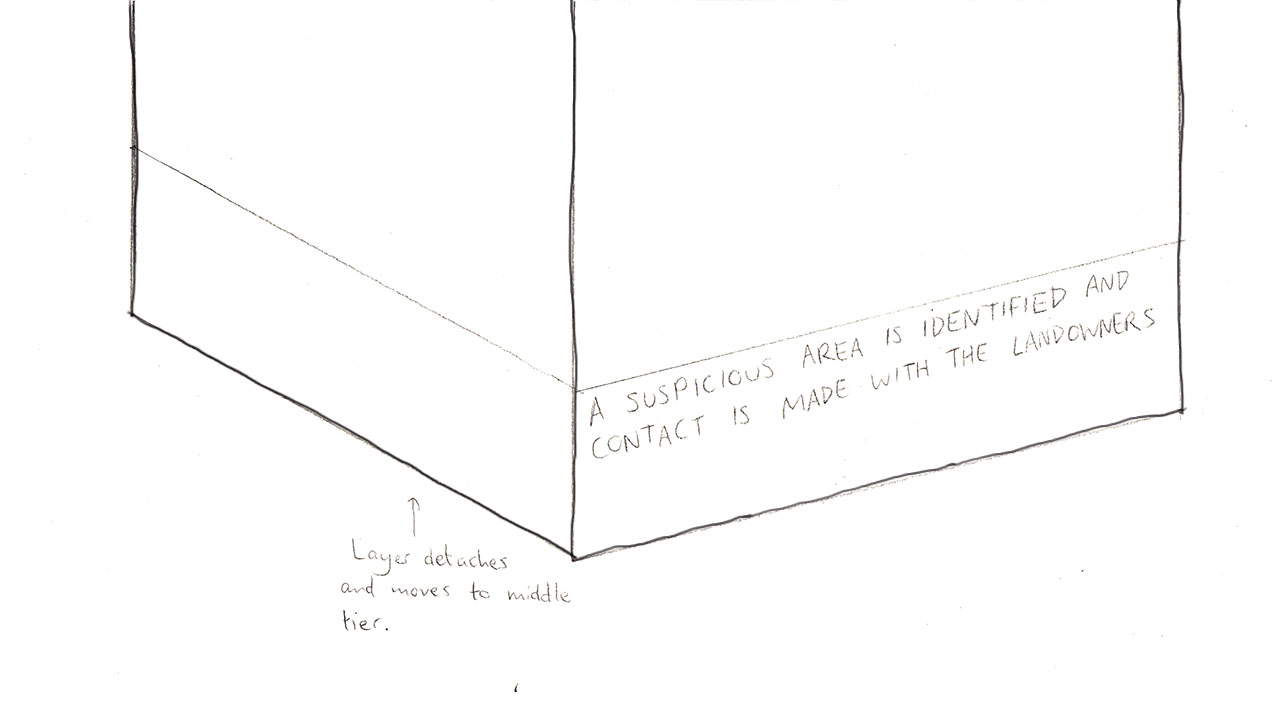 A SUSPICIOUS AREA IS IDENTIFIED AND
CONTACT IS MADE WITH THE LANDOWNERS
Layer detaches
and moves to middle
tier.